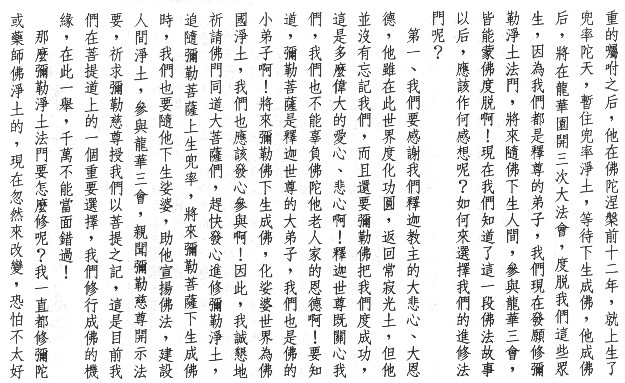 重的囑咐之后，他在佛陀涅槃前十二年，就上生了
兜率陀天，暫住兜率淨土，等待下生成佛，他成佛
后，將在龍華園開三次大法會，度脫我們這些眾
生，因為我們都是釋尊的弟子，我們現在發願修彌
勒淨土法門，將來隨佛下生人間，參與龍華三會，
皆能蒙佛度脫啊！現在我們知道了這一段佛法故事
以后，應該作何感想呢？如何來選擇我們的進修法
門呢？
第一、我們要感謝我們釋迦教主的大悲心、大恩
德，他雖在此世界度化功圓，返回常寂光土，但他
並沒有忘記我們，而且還要彌勒佛把我們度成功，
這是多麼偉大的愛心、悲心啊！釋迦世尊既關心我
們，我們也不能辜負佛陀他老人家的恩德啊！要知
道，彌勒菩薩是釋迦世尊的大弟子，我們也是佛的
小弟子啊！將來彌勒佛下生成佛，化娑婆世界為佛
國淨土，我們也應該發心參與啊！因此，我誠懇地
祈請佛門同道大菩薩們，趕快發心進修彌勒淨土，
追隨彌勒菩薩上生兜率，將來彌勒菩薩下生成佛
時，我們也要隨他下生娑婆，助他宣揚佛法，建設
人間淨土，參與龍華三會，親聞彌勒慈尊開示法
要，祈求彌勒慈尊授我們以菩提之記，這是目前我
們在菩提道上的一個重要選擇，我們修行成佛的機
緣，在此一舉，千萬不能當面錯過！
那麼彌勒淨土法門要怎麼修呢？我一直都修彌陀
或藥師佛淨土的，現在忽然來改變，恐怕不太好